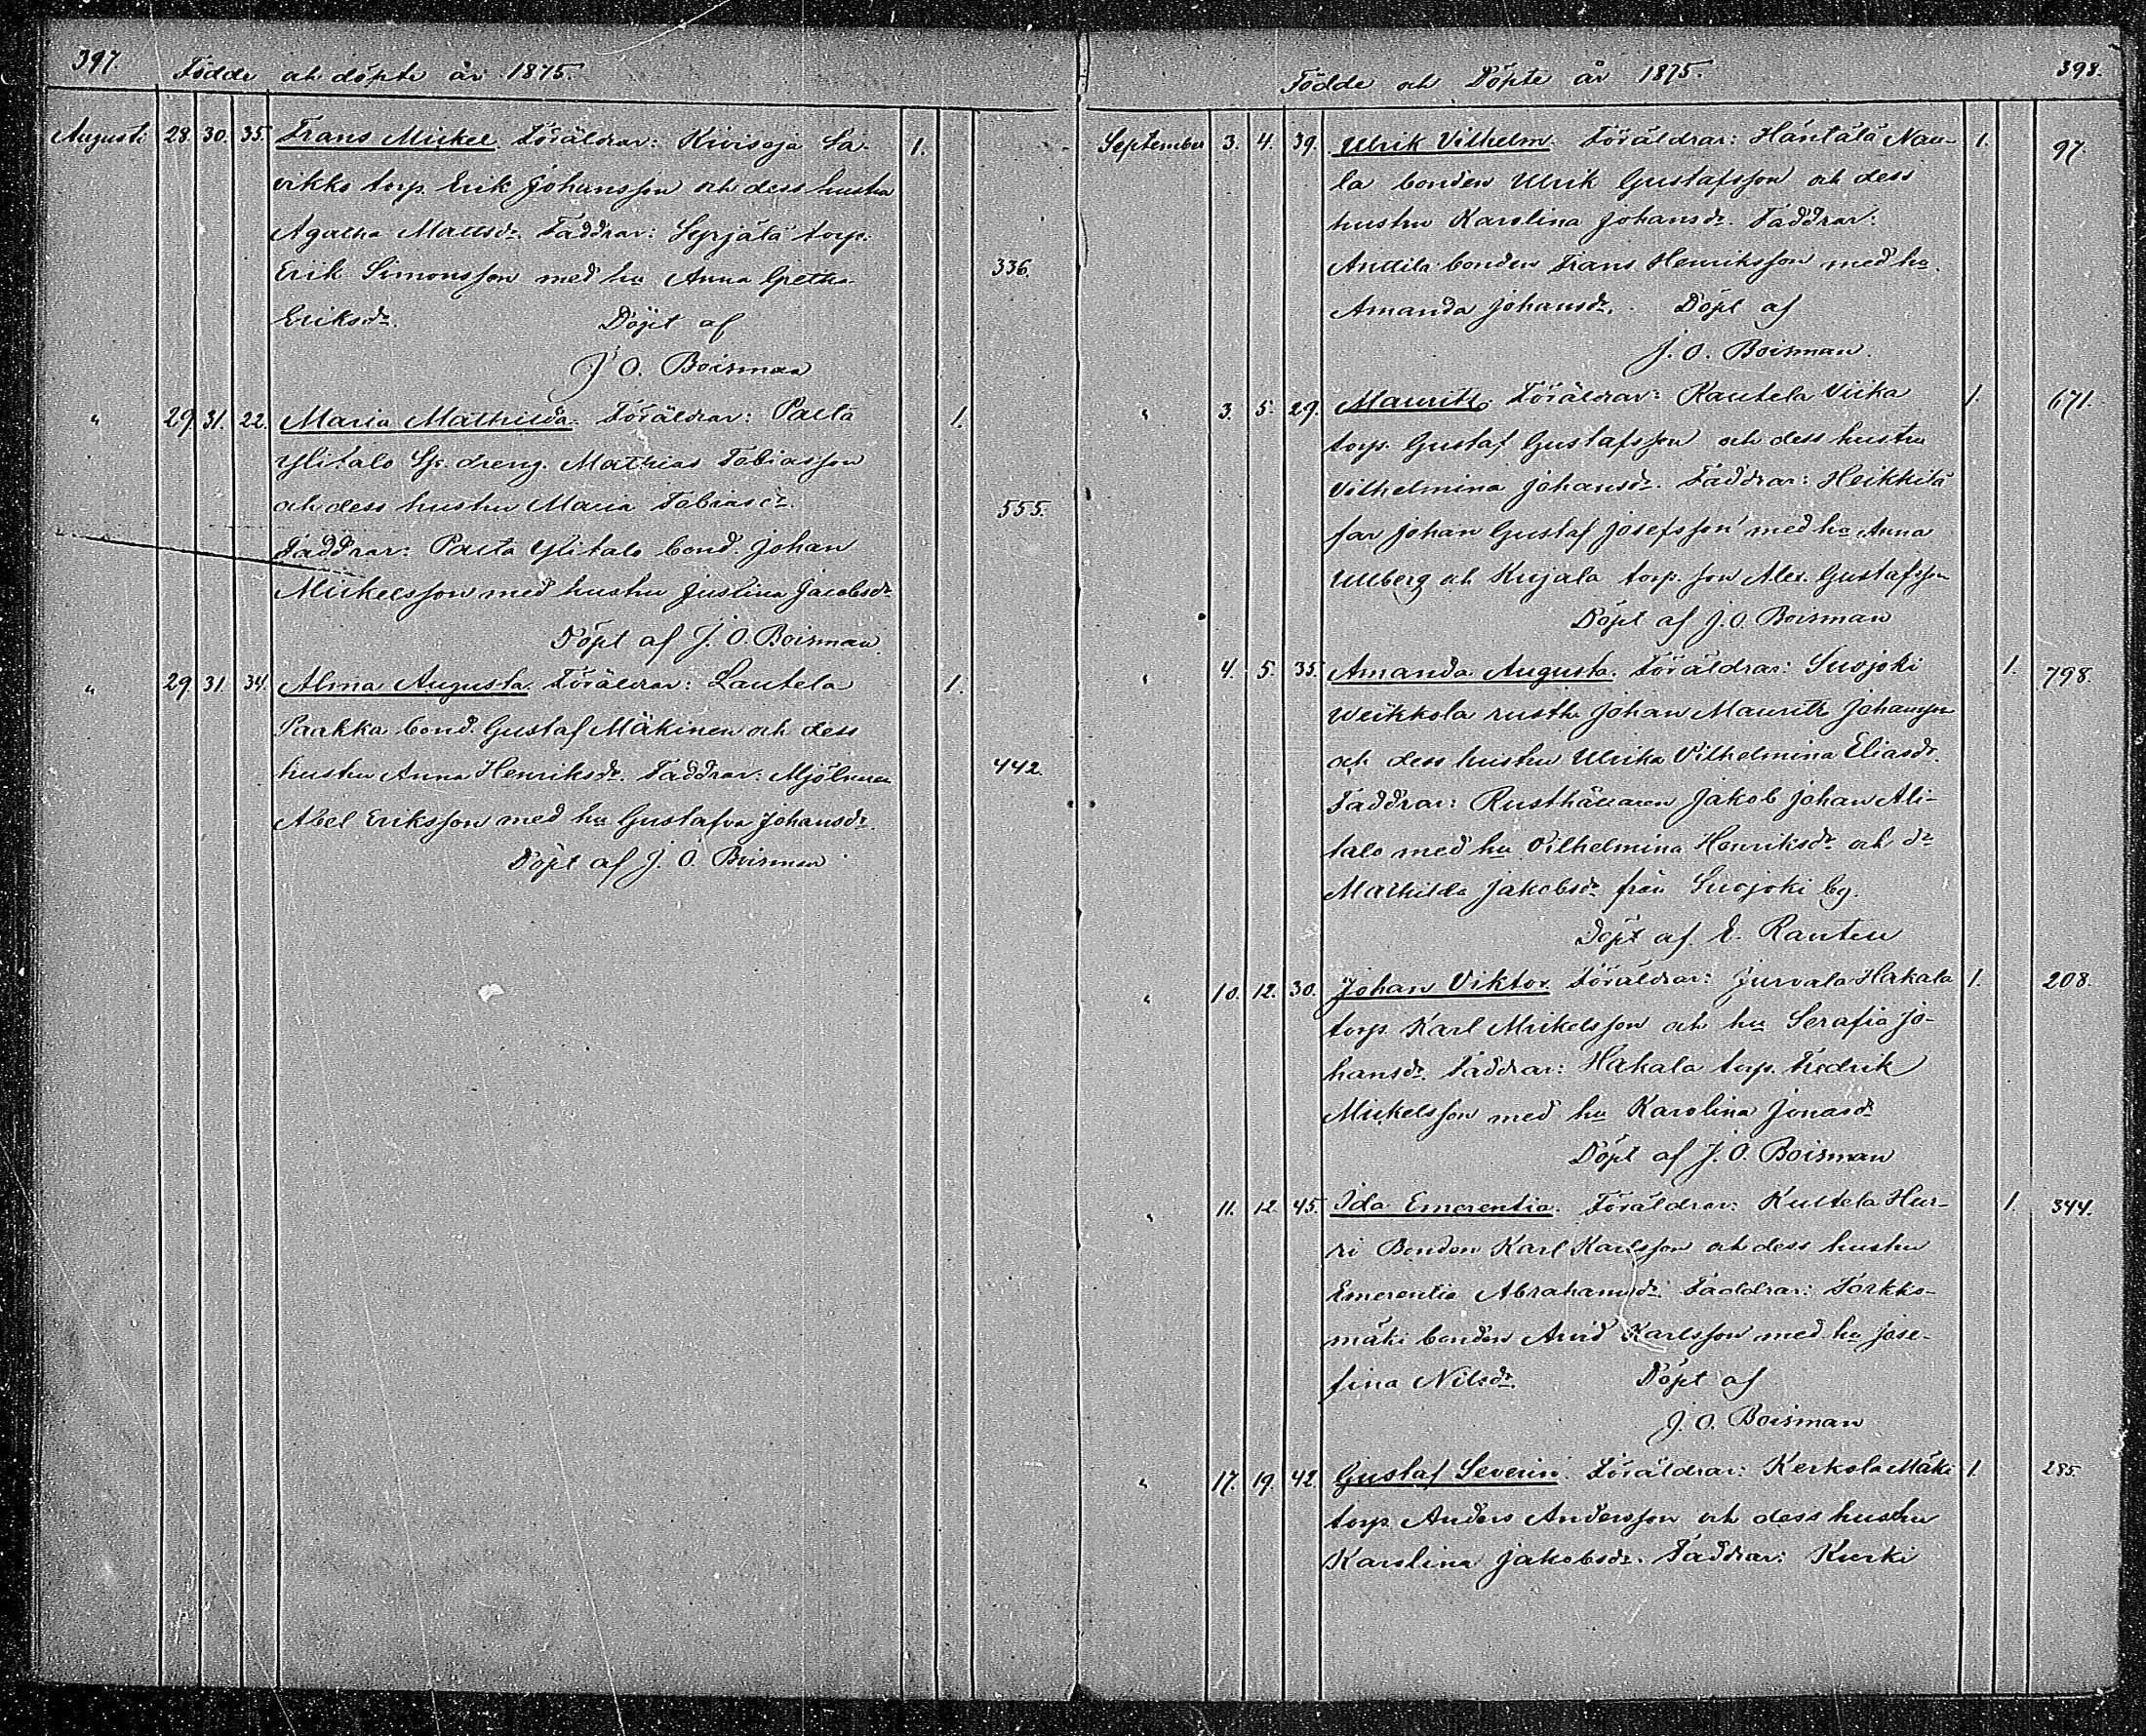 397.
Födde och döpte år 1875.
Augusti 28. 30. 35. Frans Mickel. Föräldrar: Kivioja La- 1.
vikko torp. Erik Johansson och dess hustru
Agatha Mattsdr. Faddrar: Syrjälä torp.
Erik Simonsson med hu Anna Gretha 336.
Eriksdr. Döpt af
J. O. Boisman
" 29. 31. 22. Maria Mathilda. Föräldrar: Palta 1.
Ylitalo dreng. Mathias Tobiasson
och dess hustru Maria Tobiasdr. 555.
Faddrar: Palta Ylitalo bond. Johan
Mickelsson med hustru Justina Jacobsdr
Döpt af J. O. Boisman.
" 29. 31. 34. Alma Augusta. Föräldrar: Lautela 1.
Paakka bond. Gustaf Mäkinen och dess
hustru Anna Henriksdr. Faddrar: Mjölnaren 442.
Abel Eriksson med hu Gustafva Johansdr.
Döpt af J. O. Boisman
398.
Födde och Döpte år 1875.
September 3. 4. 39. Ulrik Vilhelm. Föräldrar: Häntälä Nau- 1. 97.
la bonden Ulrik Gustafsson och dess
hustru Karolina Johansdr. Faddrar:
Anttila bonden Frans Henriksson med hu
Amanda Johansdr. Döpt af
J. O. Boisman.
" 3. 5. 29. Mauritz. Föräldrar: Rautela Viika 1. 671.
torp. Gustaf Gustafsson och dess hustru
Vilhelmina Johansdr. Faddrar: Heikkilä
far Johan Gustaf Josefsson med hu Anna
Ullberg och Kujala torp. son Alex. Gustafsson
Döpt af J. O. Boisman
" 4. 5. 35. Amanda Augusta. Föräldrar: Suojoki 1. 798.
Weikkola rusth. Johan Mauritz Johansson
och dess hustru Ulrika Vilhelmina Eliasdr.
Faddrar: Rusthållaren Jakob Johan Ali-
talo med hu Vilhelmina Henriksdr och dr
Mathilda Jakobsdr från Suojoki by.
Döpt af E. Rauten
" 10. 12. 30. Johan Viktor. Föräldrar: Jurvala Hakala 1. 208.
torp. Karl Mickelsson och hu Serafia Jo-
hansdr. Faddrar: Hakala torp. Fredrik
Mickelsson med hu Karolina Jonasdr
Döpt af J. O. Boisman
" 11. 12. 45. Ida Emerentia. Föräldrar: Kuttela Hur- 1. 344.
ri Bonden Karl Karlsson och dess hustru
Emerentia Abrahamsdr. Faddrar: Torkko-
mäki bonden Arvid Karlsson med hu Jose-
fina Nilsdr. Döpt af
J. O. Boisman
" 17. 19. 42. Gustaf Severin. Föräldrar: Kerkola Mäki 1. 285.
torp. Anders Andersson och dess hustru
Karolina Jakobsdr. Faddrar: Kurki